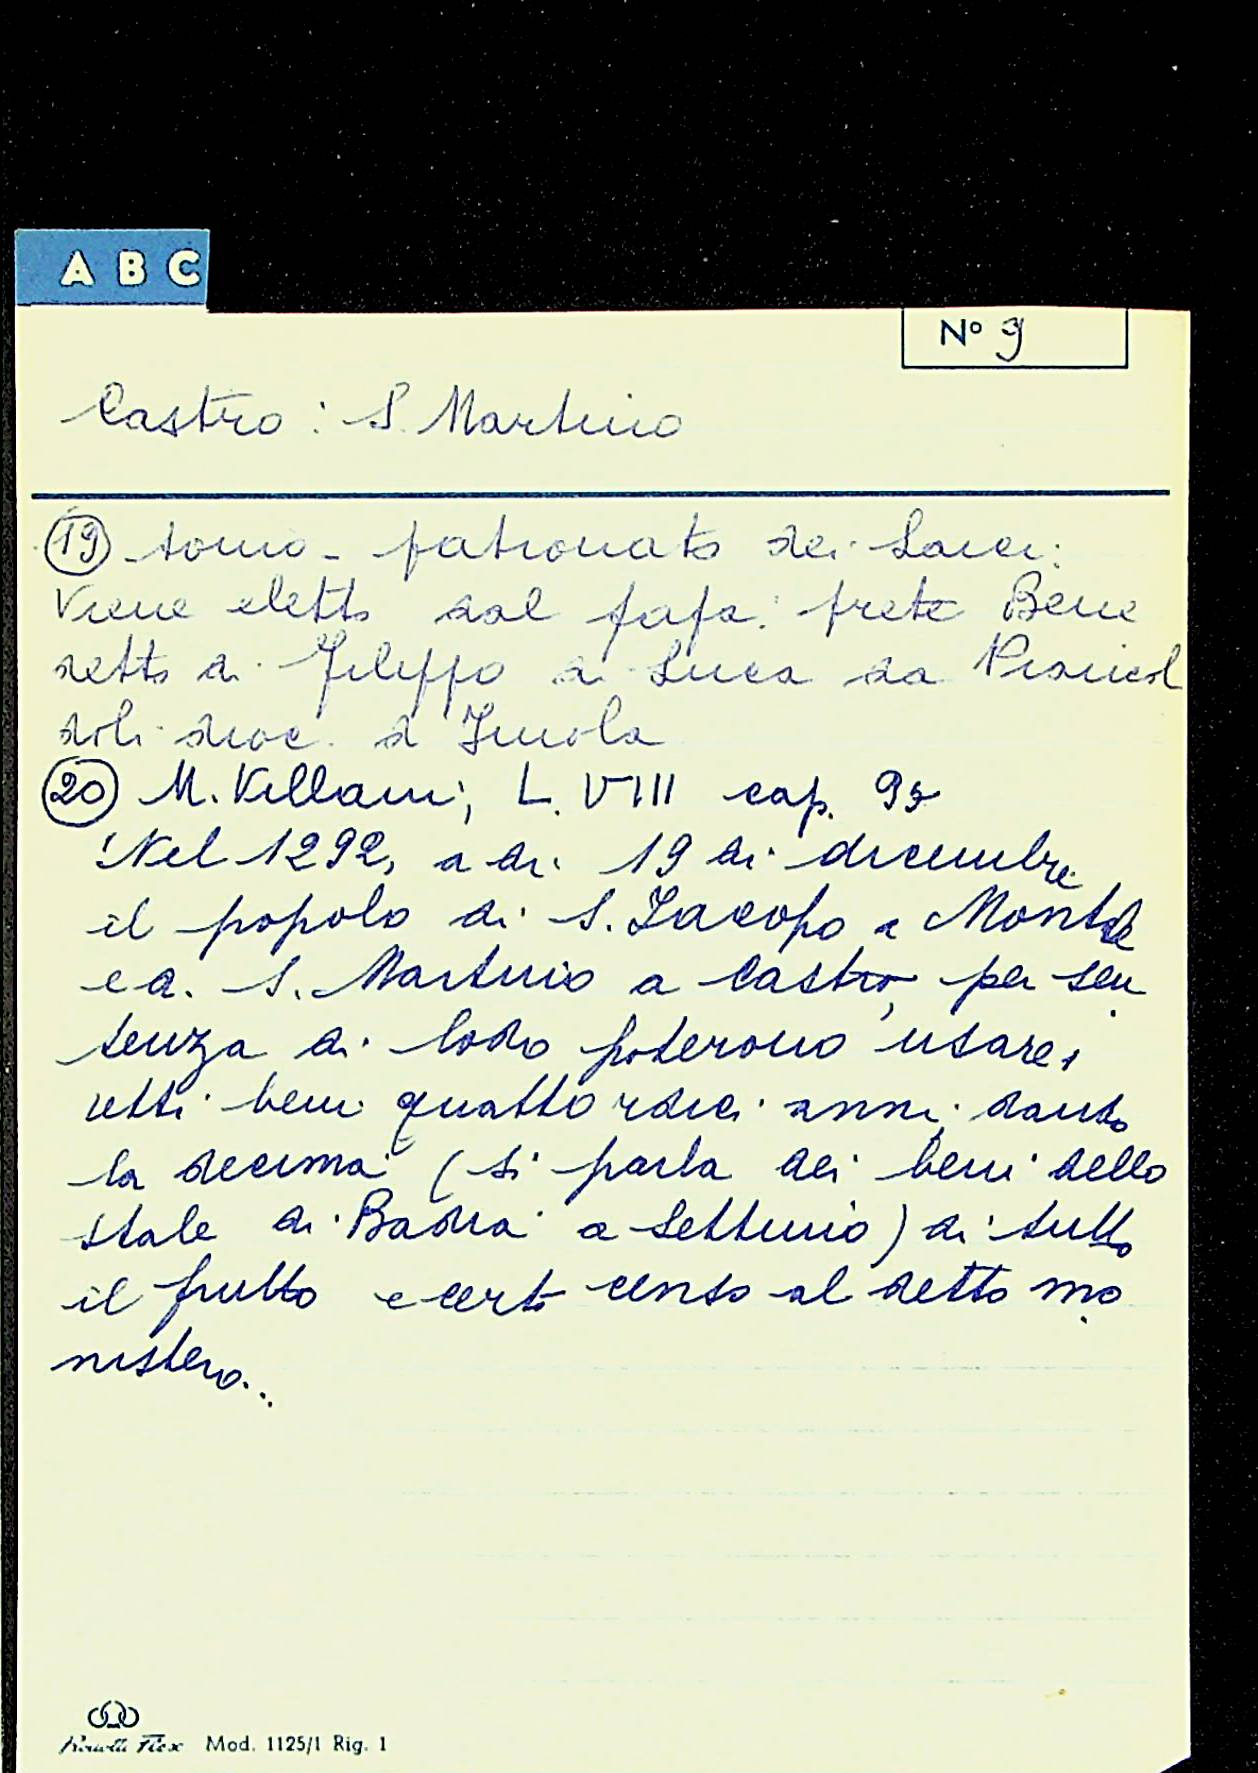 A B C
Nº 9
Castro: S. Martino
19 torio - patronato dei Laici:
Viene eletto dal papa: prete Bene
detto di Filippo di Luca da
doli dioc. d'Imola
20 M. Villani, L. VIII cap.
"Nel 1292, a di 19 di dicembre
il popolo di S. Iacopo a Monte
e a S. Martino a Castro, per sen
tenza di lodo poterono usare i
detti beni quattordici anni, dando
la decima (si parla dei beni dello
stale di Badia a Settimo) di tutto
il frutto e certo censo al detto mo
nistero..
Mod. 1125/1 Rig. 1